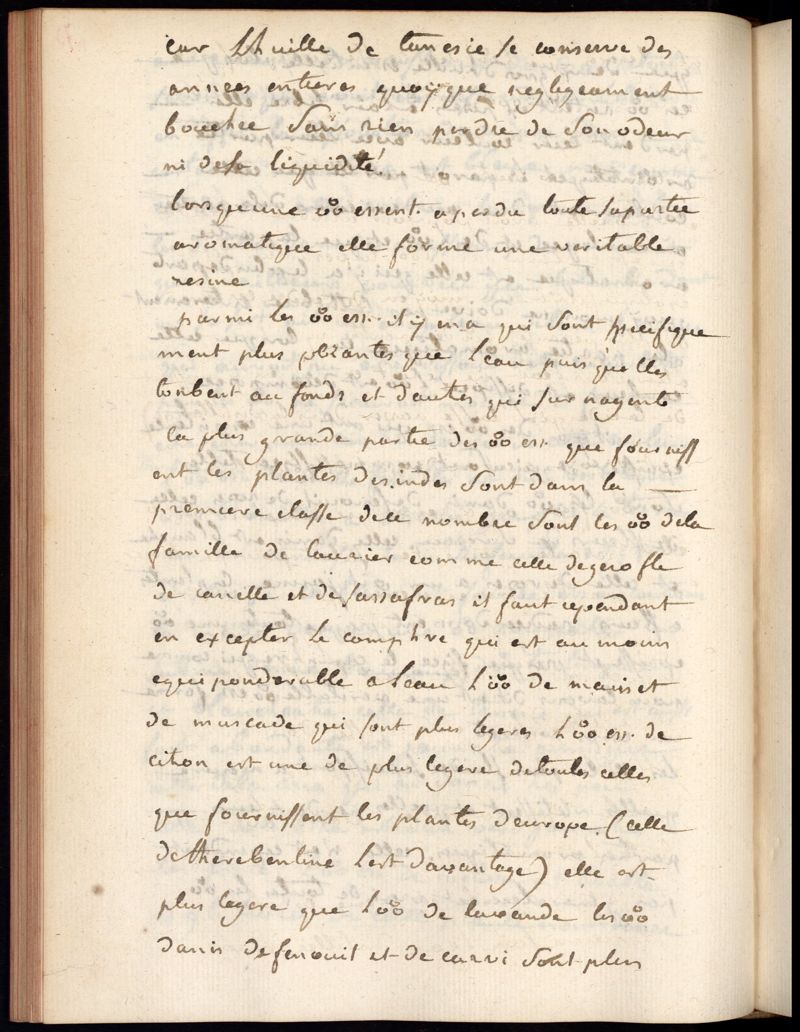 car Lhuille de tanesie se conserve des
années entieres quoyque negligeament
bouchee Sans rien perdre de Son odeur
ni desa liquidité
lorsqueune ꝏ essent. aperdu toute sapartie
aromatique elle forme une veritable
resine
parmi les ꝏ ess. il y ena qui Sont specifique
ment plus pezantes que leau puisquelles
tonbent au fonds et dautes qui surnagent
la plus grande partie des ꝏ ess. que fourniss
ent les plantes desindes Sont dans la
premiere classe dece nombre Sont les ꝏ dela
famille de laurier comme celle degerofle
de canelle et de sassafras il faut cependant
en excepter le comphre qui est au moins
equiponderable aleau lꝏ de macis et
de muscade qui sont plus legeres lꝏ ess. de
citron est une de plus legere detoutes celles
que fournissent les plantes deurope (celle
detherebentine lest davantage) elle est
plus legere que lꝏ de lavande les ꝏ
danis defenouil et de carvi Sont plus